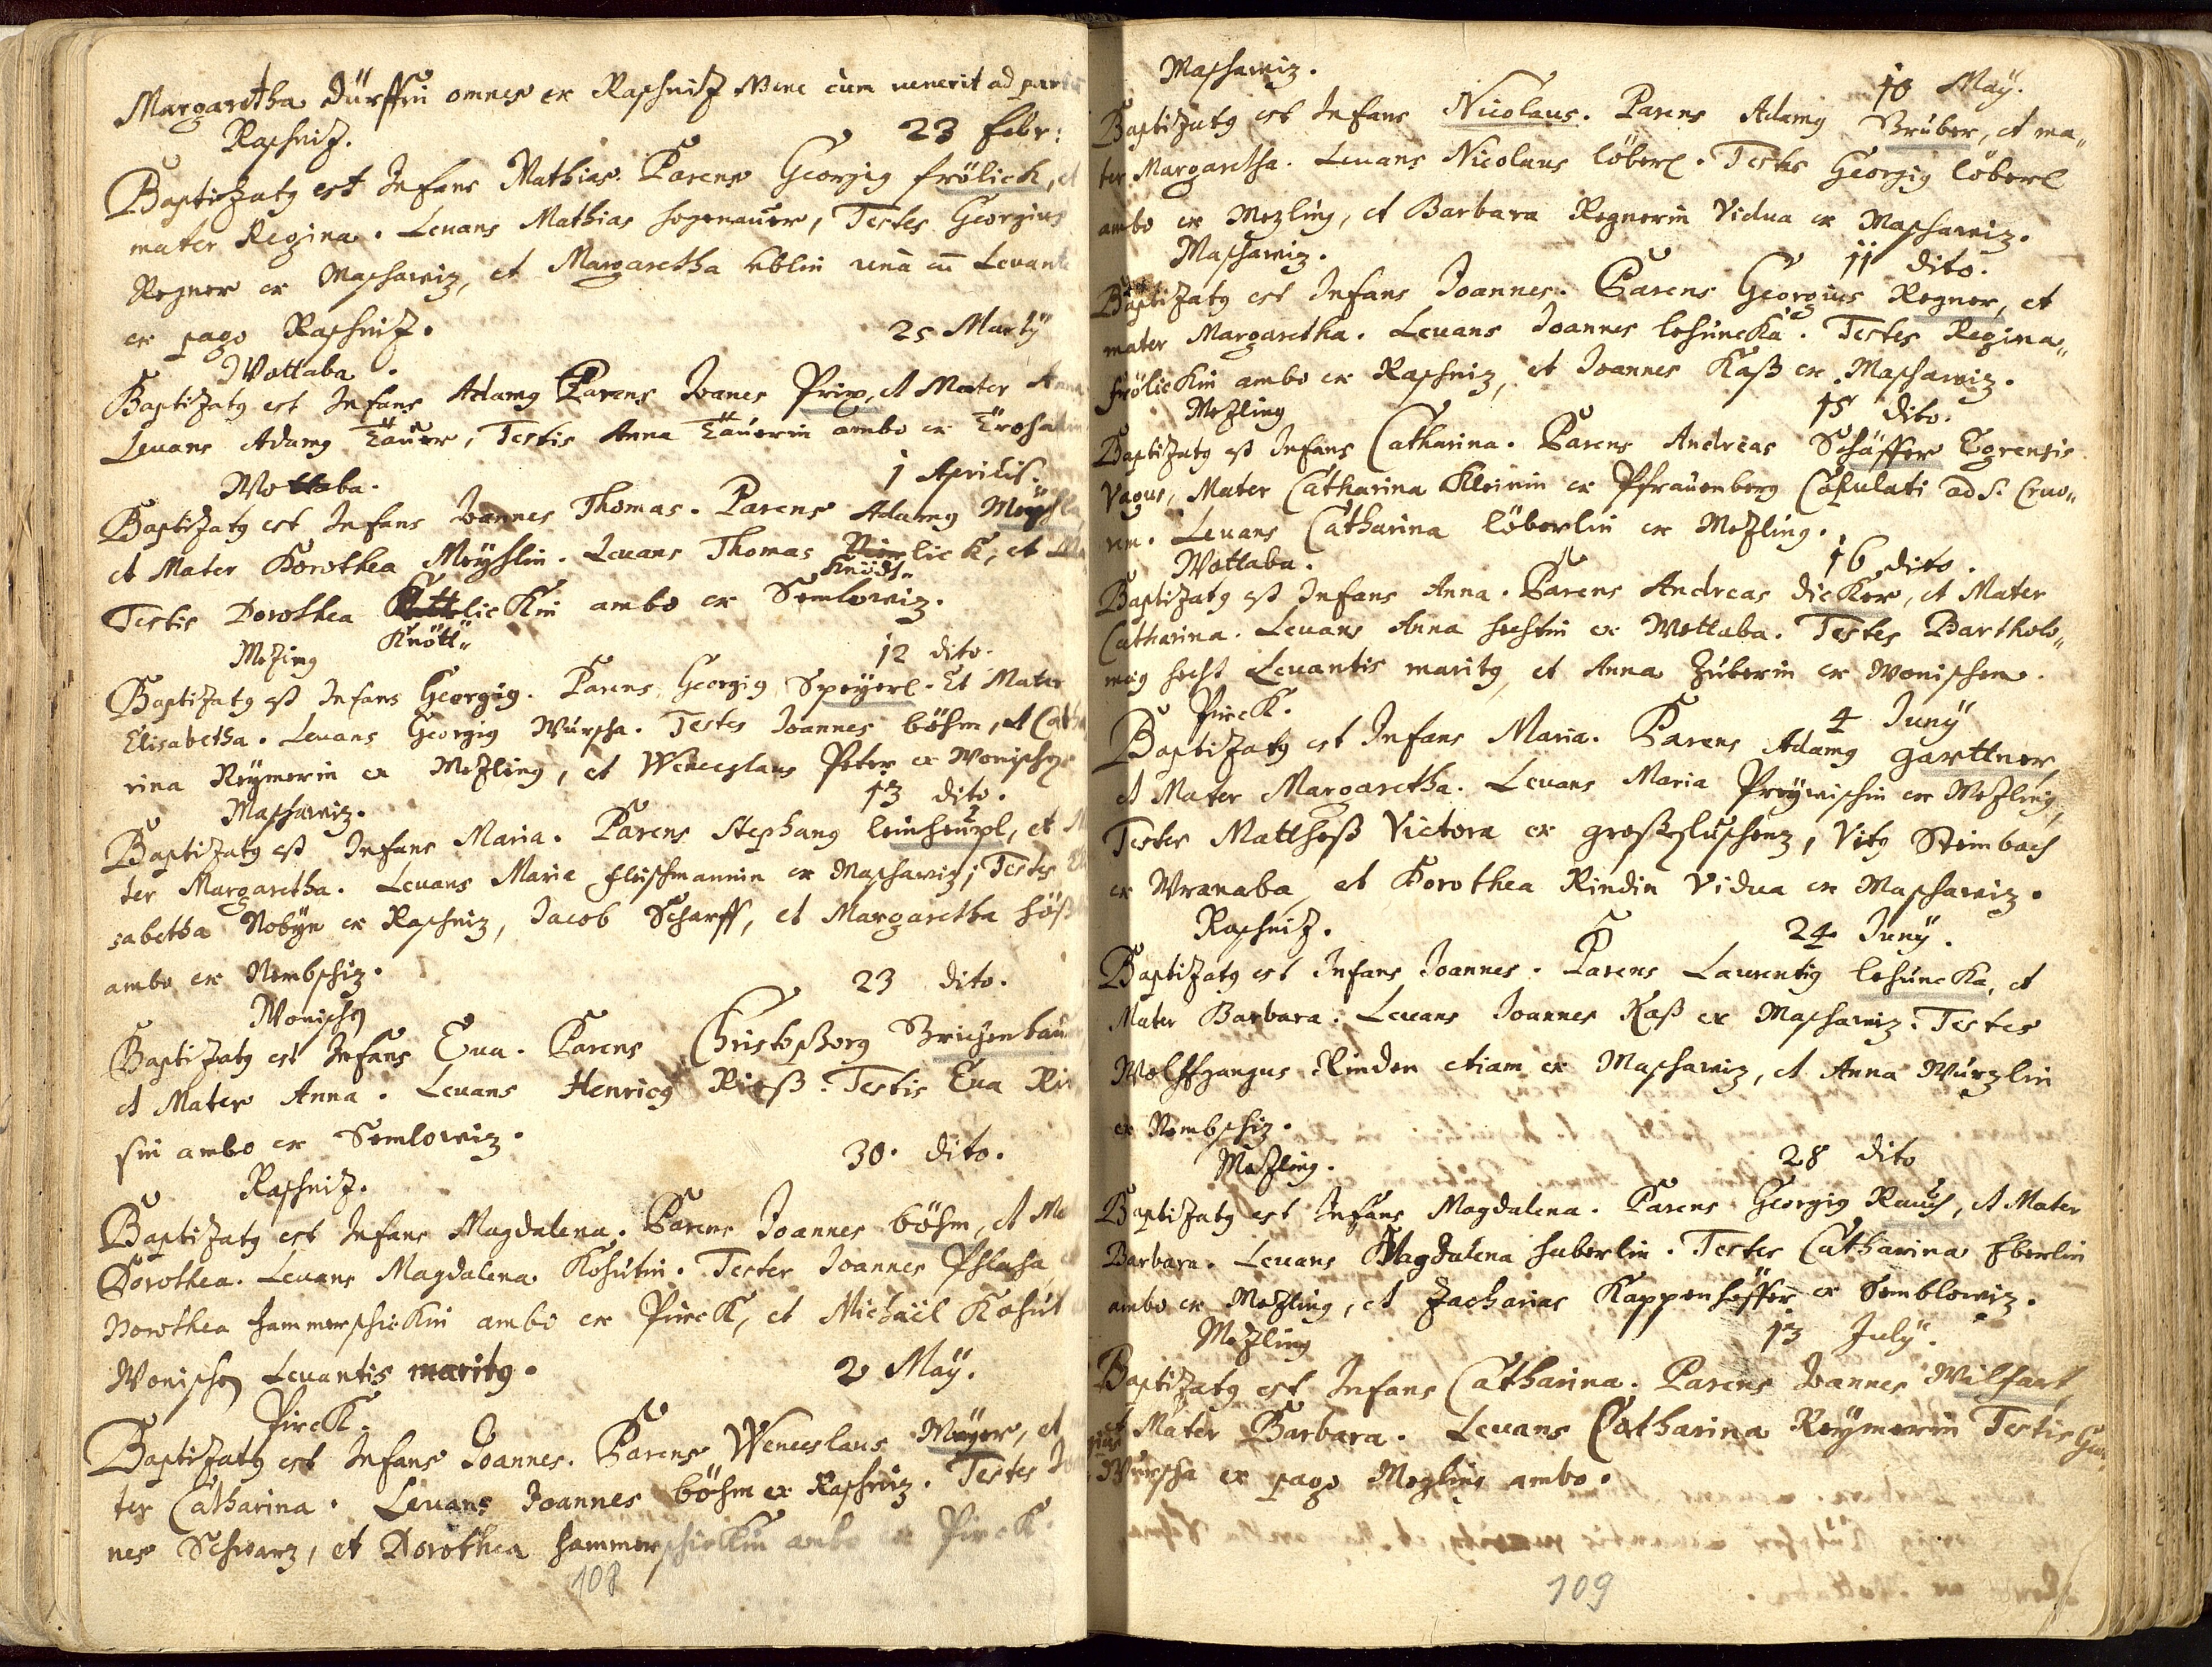 Margaretha Dürffin omnes ex Raschnitz Bene cum uenerit ad
Raschnitz. 23 Febr:
Baptizatg est Infans Mathias. Parens Georgig Frölich, et
mater Regina. Leuans Mathias Hogenauer, Testes Georgius
Regner ex Maschawiz, et Margaretha Eblin unà cū Leuante
ex pago Raschnitz.
Wottaba. 25 Martÿ
Baptizatg est Infans Adamg Parens Joanes Prix, et Mater Anna
Leuans Adamg Täuer, Testis Anna Täuerin ambo ex
Wottaba. 1 Aprilis.
Baptizatg est Infans Joannes Thomas. Parens Adamg
et Mater Dorothea Meÿslin. Leuans Thomas lick, et
Knödt„
Testis Dorothea lickin ambo ex Semlowiz.
Knött„
Mezing 12 dito.
Baptizatg est Infans Georgig. Parens Georgig Speÿerl. Et Mater
Elisabetha. Leuans Georgig Wurscha. Testes Joannes Böhm, et Catha
rina Reÿmerin ex Mezling, et Wenceslaus Peter ex Wonischen
Maschawiz. 13 dito.
Baptizatg est Infans Maria. Parens Stephang Leinheupl, et
ter Margaretha. Leuans Maria Fleischmannin ex Maschawiz; Testes
sabetha Nobÿn ex Raschniz, Jacob Scharff, et Margaretha
ambo ex Nembschiz.
Wonischen 23 dito.
Baptizatg est Infans Eua. Parens Christophorg
et Mater Anna. Leuans Henricg Rieß. Testis Eua Rie
sin ambo ex Semlowiz.
Raschnitz. 30. dito.
Baptizatg est Infans Magdalena. Parens Joannes Böhm, et
Dorothea. Leuans Magdalena Kohutin. Testes Joannes Pflaha
Dorothea Hammerschickin ambo ex Pirck, et Michaël Kohut
Wonischen Leuantis maritg.
Pirck. 2 Maÿ.
Baptizatg est Infans Joannes. Parens Wenceslaus Maÿer, et
ter Catharina. Leuans Joannes Böhm ex Raschniz. Testes
nes Schwarz, et Dorothea Hammerschickin ambo ex Pirck.
108
Maschawiz. 10 Maÿ.
Baptizatg est Infans Nicolaus. Parens Adamg Gruber, et ma„
ter Margaretha. Leuans Nicolaus Löberl. Testes Georgig Löberl
ambo ex Mezling, et Barbara Regnerin Vidua ex Maschawiz.
Maschawiz. 11 dito.
Baptizatg est Infans Joannes. Parens Georgius Regner, et
mater Margaretha. Leuans Joannes Lehuncka. Testes Regina„
Frölickin ambo ex Raschniz, et Joannes Kaß ex Maschawiz.
Mezling 15 dito.
Baptizatg est Infans Catharina. Parens Andreas Schäffer Egrensis
Vagus, Mater Catharina Kleinin ex Pfrauenberg Copulati ad S. Cruc„
em. Leuans Catharina Löberlin ex Mezling.
Wottaba. 16 dito.
Baptizatg est Infans Anna. Parens Andreas Dicker, et Mater
Catharina. Leuans Anna Hechtin ex Wottaba. Testes Bartholo„
mæg Hecht Leuantis maritg, et Anna Zuberin ex Wonischen.
Pirck. 4 Junÿ
Baptizatg est Infans Maria. Parens Adamg Garttner,
et Mater Margaretha. Leuans Maria Preÿwischin ex Mezling,
Testes Mattheß Victora ex Großschluschenz, Vitg Steinbach
ex Wranaba, et Dorothea Rindin Vidua ex Maschawiz.
Raschnitz. 24 Junÿ.
Baptizatg est Infans Joannes. Parens Laurentig Lehuncka, et
Mater Barbara. Leuans Joannes Kaß ex Maschawiz. Testes
Wolffgangus Rinden etiam ex Maschawiz, et Anna Wurzlin
ex Nembschiz.
Mezling. 28 dito
Baptizatg est Infans Magdalena. Parens Georgig Rauch, et Mater
Barbara. Leuans Magdalena Haberlin. Testes Catharina Eberlin
ambo ex Mezling, et Zacharias Kappenhöffer ex Semblowiz.
Mezling 13 Julÿ.
Baptizatg est Infans Catharina. Parens Joannes Wilfart,
et Mater Barbara. Leuans Catharina Reÿmerin Testis Geor
gius Wurscha ex pago Mezling ambo.
109